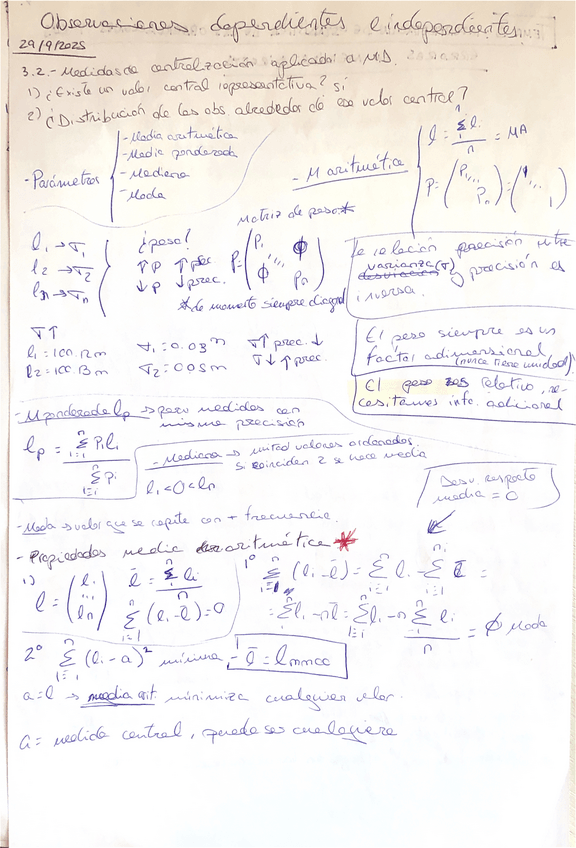 Observaciones dependientes e independientes
29/9/2025
3.2.- Medidas de centralización aplicado a MD.
1) ¿Existe un valor central representativo? Sí
2) ¿Distribución de las obs alrededor de ese valor central?
- Parámetros
- Media aritmética
- Media ponderada
- Mediana
- Moda
- M aritmética
l̄ = Σ lᵢ / n = MA
P = (P₁... Pₙ) = (1... 1)
l₁ → σ₁
l₂ → σ₂
lₙ → σₙ
¿peso?
↑ P ↑ prec
↓ P ↓ prec.
Matriz de peso*
P = (P₁ ... Pₙ) φ φ
* de momento siempre diagonal
relación precisión entre
varianza (σ) y precisión es
inversa.
σ↑
l₁ = 100.12m σ₁ = 0.03m σ↑ prec. ↓
l₂ = 100.13m σ₂ = 005m σ↓ ↑ prec.
El peso siempre es un
factor adimensional
(nunca tiene unidad)
El peso es relativo, ne-
cesitamos info. adicional
- M ponderada lp → para medidas con
misma precisión
lp = Σ Pᵢlᵢ / Σ Pᵢ
- Mediana → mitad valores ordenados.
si coinciden 2 se hace media
l₁ < 0 < lₙ
Desv. respecto
media = 0
- Moda → valor que se repite con + frecuencia.
- Propiedades media aritmética *
1) l = (l₁ ... lₙ) l̄ = Σ lᵢ / n
Σ (lᵢ - l̄) = 0
1º Σ (lᵢ - l̄) = Σ lᵢ - Σ l̄ =
= Σ lᵢ - n l̄ = Σ lᵢ - n Σ lᵢ / n = φ
2º Σ (lᵢ - a)² mínima, l̄ = lmmcc
a = l → media arit. minimiza cualquier valor.
a = medida central, puede ser cualquiera